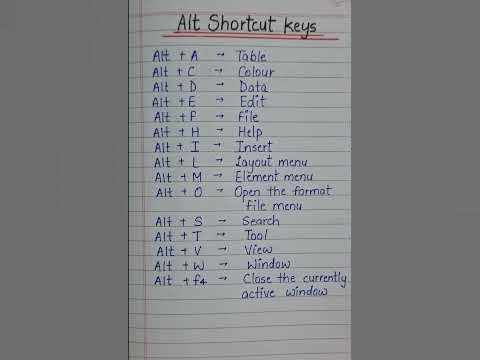 Alt Shortcut keys
Alt + A → Table
Alt + C → Colour
Alt + D → Data
Alt + E → Edit
Alt + F → File
Alt + H → Help
Alt + I → Insert
Alt + L → Layout menu
Alt + M → Element menu
Alt + O → Open the format
file menu
Alt + S → Search
Alt + T → Tool
Alt + V → View
Alt + W → Window
Alt + f4 → Close the currently
active window